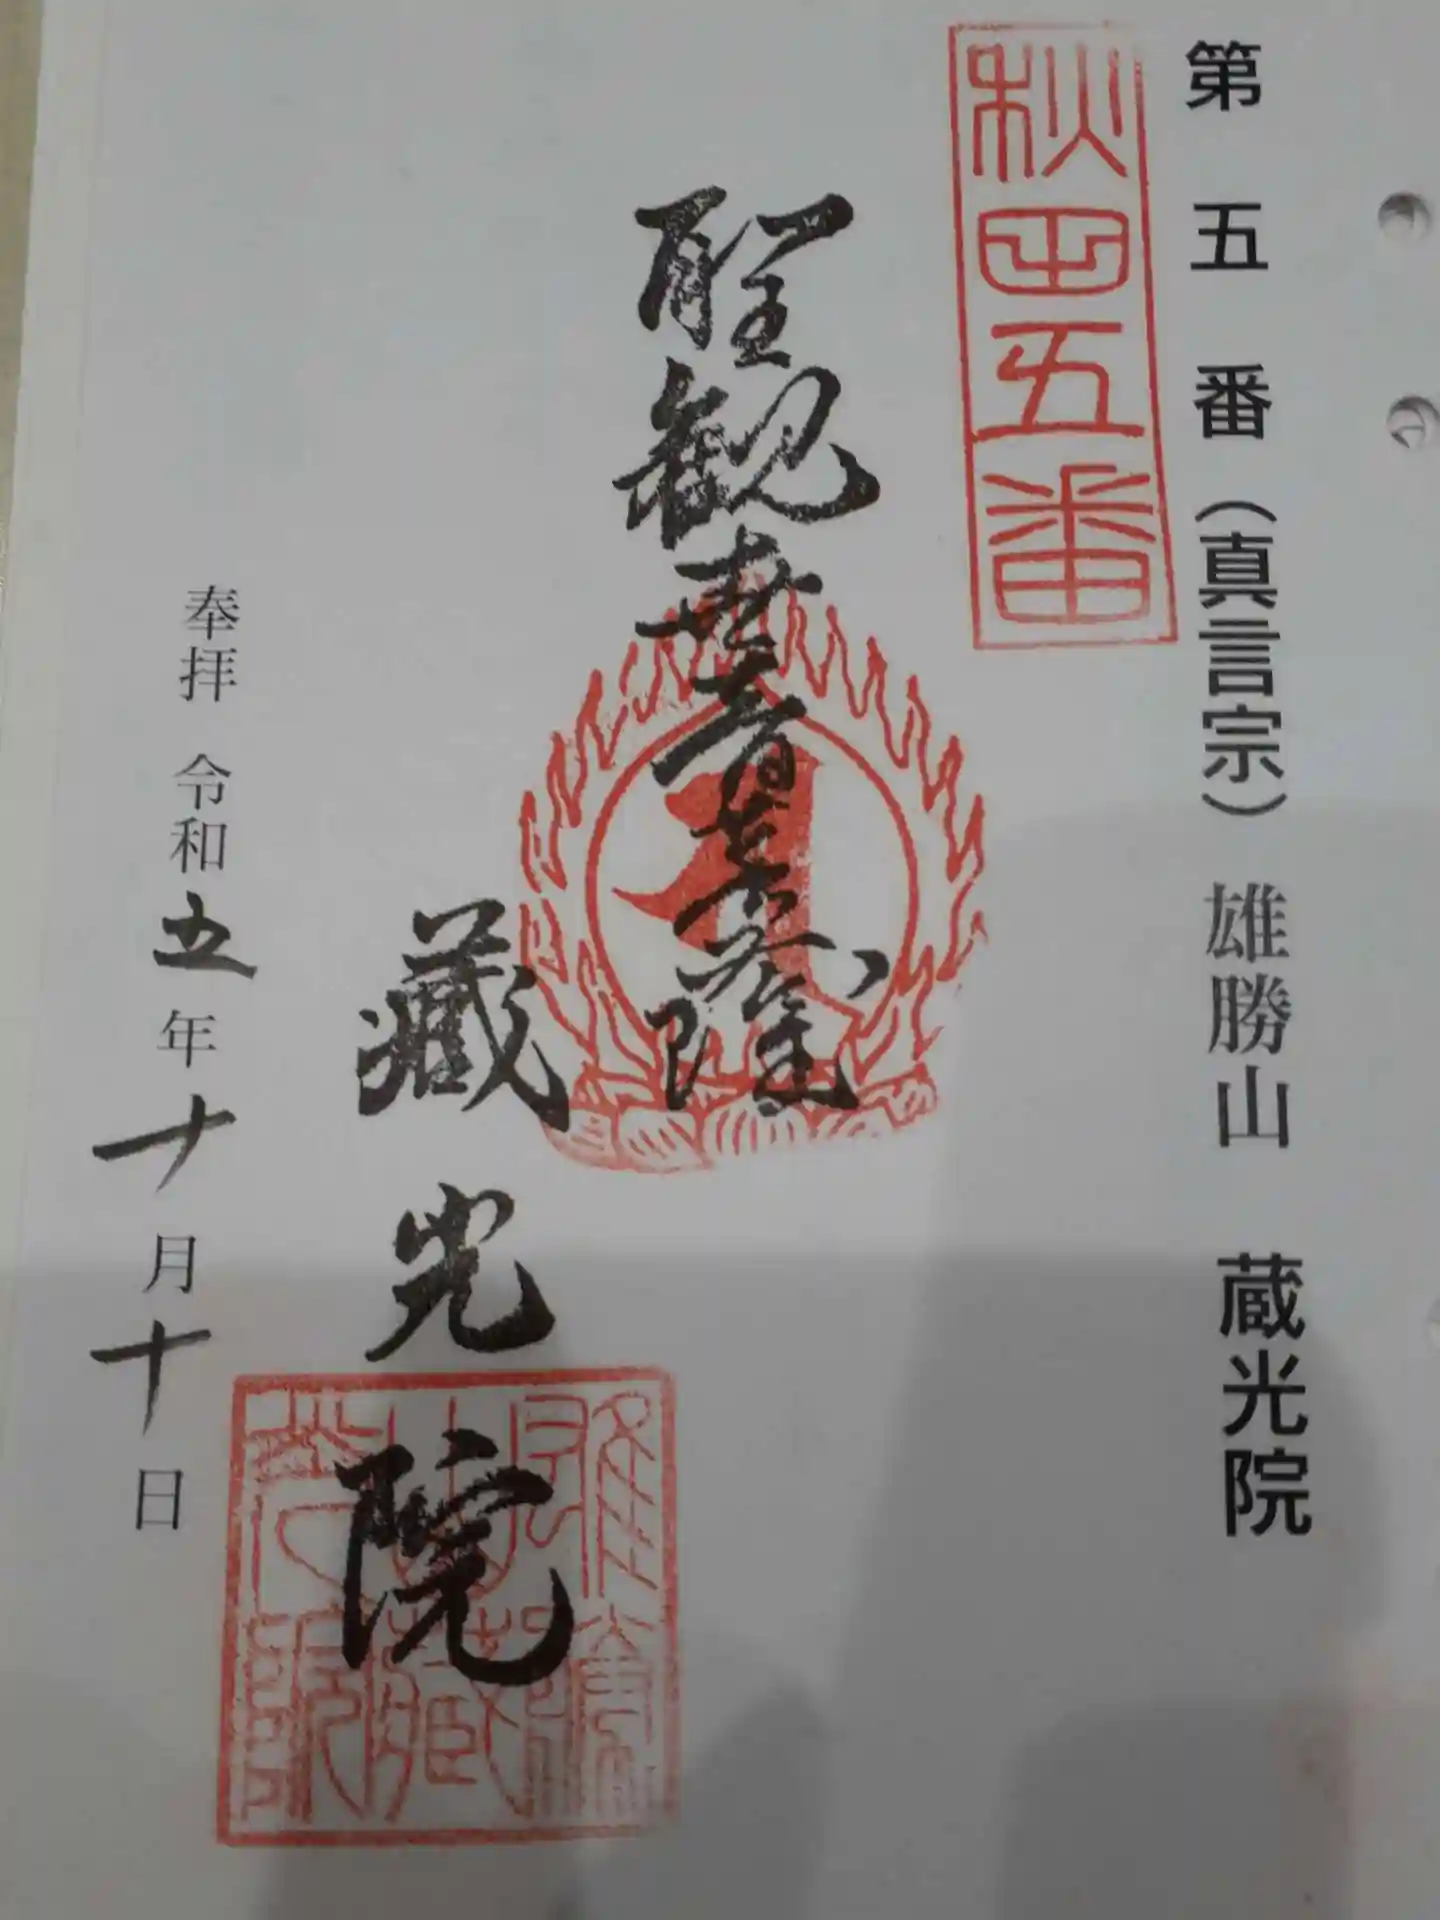 第五番（真言宗）雄勝山 蔵光院
秋田五番
聖観世音菩薩
藏光院
雄勝山藏光院
奉拝 令和五年十月十日